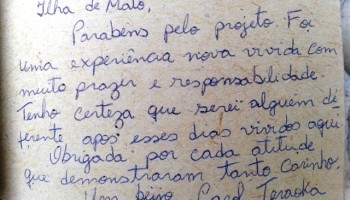 Ilha de Maio,
Parabens pelo projeto. Foi
uma experiência nova vivida com
muito prazer e responsabilidade.
Tenho certeza que serei alguem di
ferente após esses dias vividos aqui
Obrigada por cada atitude
que demonstraram tanto carinho.
Um beijo Carol Teraoka